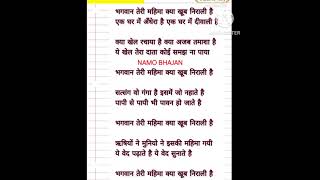 भगवान तेरी महिमा क्या खूब निराली है
एक घर में अँधेरा है एक घर में दीवाली है
क्या खेल रचाया है क्या अजब तमाशा है
ये खेल तेरा दाता कोई समझ ना पाया
NAMO BHAJAN
भगवान तेरी महिमा क्या खूब निराली है
सत्संग वो गंगा है इसमें जो नहाते है
पापी से पापी भी पावन हो जाते है
भगवान तेरी महिमा क्या खूब निराली है
ऋषियों ने मुनियो ने इसकी महिमा गयी
ये वेद पढ़ाते है ये वेद सुनाते है
भगवान तेरी महिमा क्या खूब निराली है